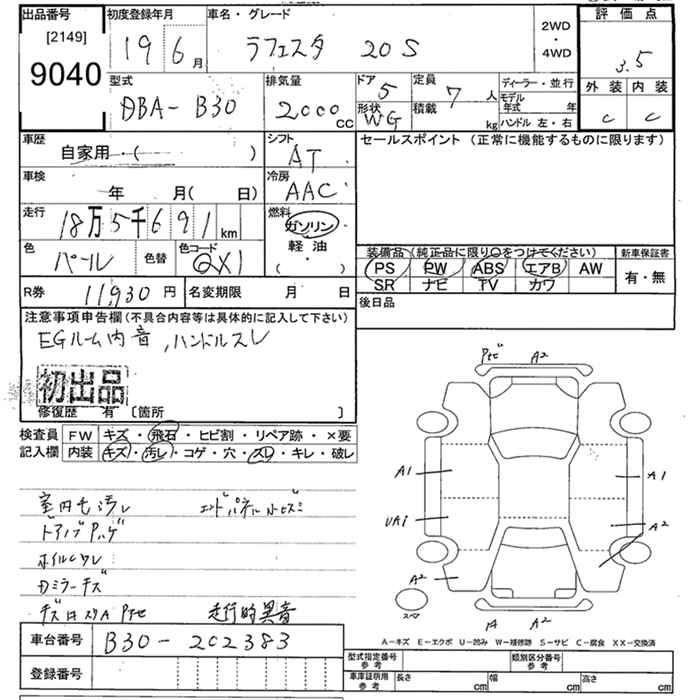 出品番号 初度登録年月 車名・グレード 評価点
[2149] 19 6月 ラフェスタ 20S 2WD・4WD 3.5
9040
外装 内装
型式 排気量 ドア 5 定員 7人 ディーラー・並行
DBA-B30 2000cc 形状 WG 積載 kg モデル年式 年
ハンドル 左・右 C C
車歴 シフト セールスポイント (正常に機能するものに限ります)
自家用・( ) AT
車検 年 月( 日) 冷房 AAC
走行 18万5千691km 燃料 ガソリン
軽油
( ・ )
色 パール 色替 色コード QX1
装備品(純正品に限り○をつけてください) 新車保証書
PS PW ABS エアB AW 有・無
SR ナビ TV カワ
R券 11,930円 名変期限 月 日 後日品
注意事項申告欄(不具合内容等は具体的に記入して下さい)
EGルーム内音,ハンドルスレ
初出品
修復歴 有 〔箇所 〕
検査員 FW キズ・飛石・ヒビ割・リペア跡・×要
記入欄 内装 キズ・汚レ・コゲ・穴・スレ・キレ・破レ
A2
A1 A1
A2
A2
スペア A2
室内 汚レ
走行時異音
A-キズ E-エクボ U-凹み W-補修跡 S-サビ C-腐食 XX-交換済
車台番号 B30-202383
登録番号
型式指定番号 参考 類別区分番号 参考
車庫証明用 参考 長さ cm 幅 cm 高さ cm